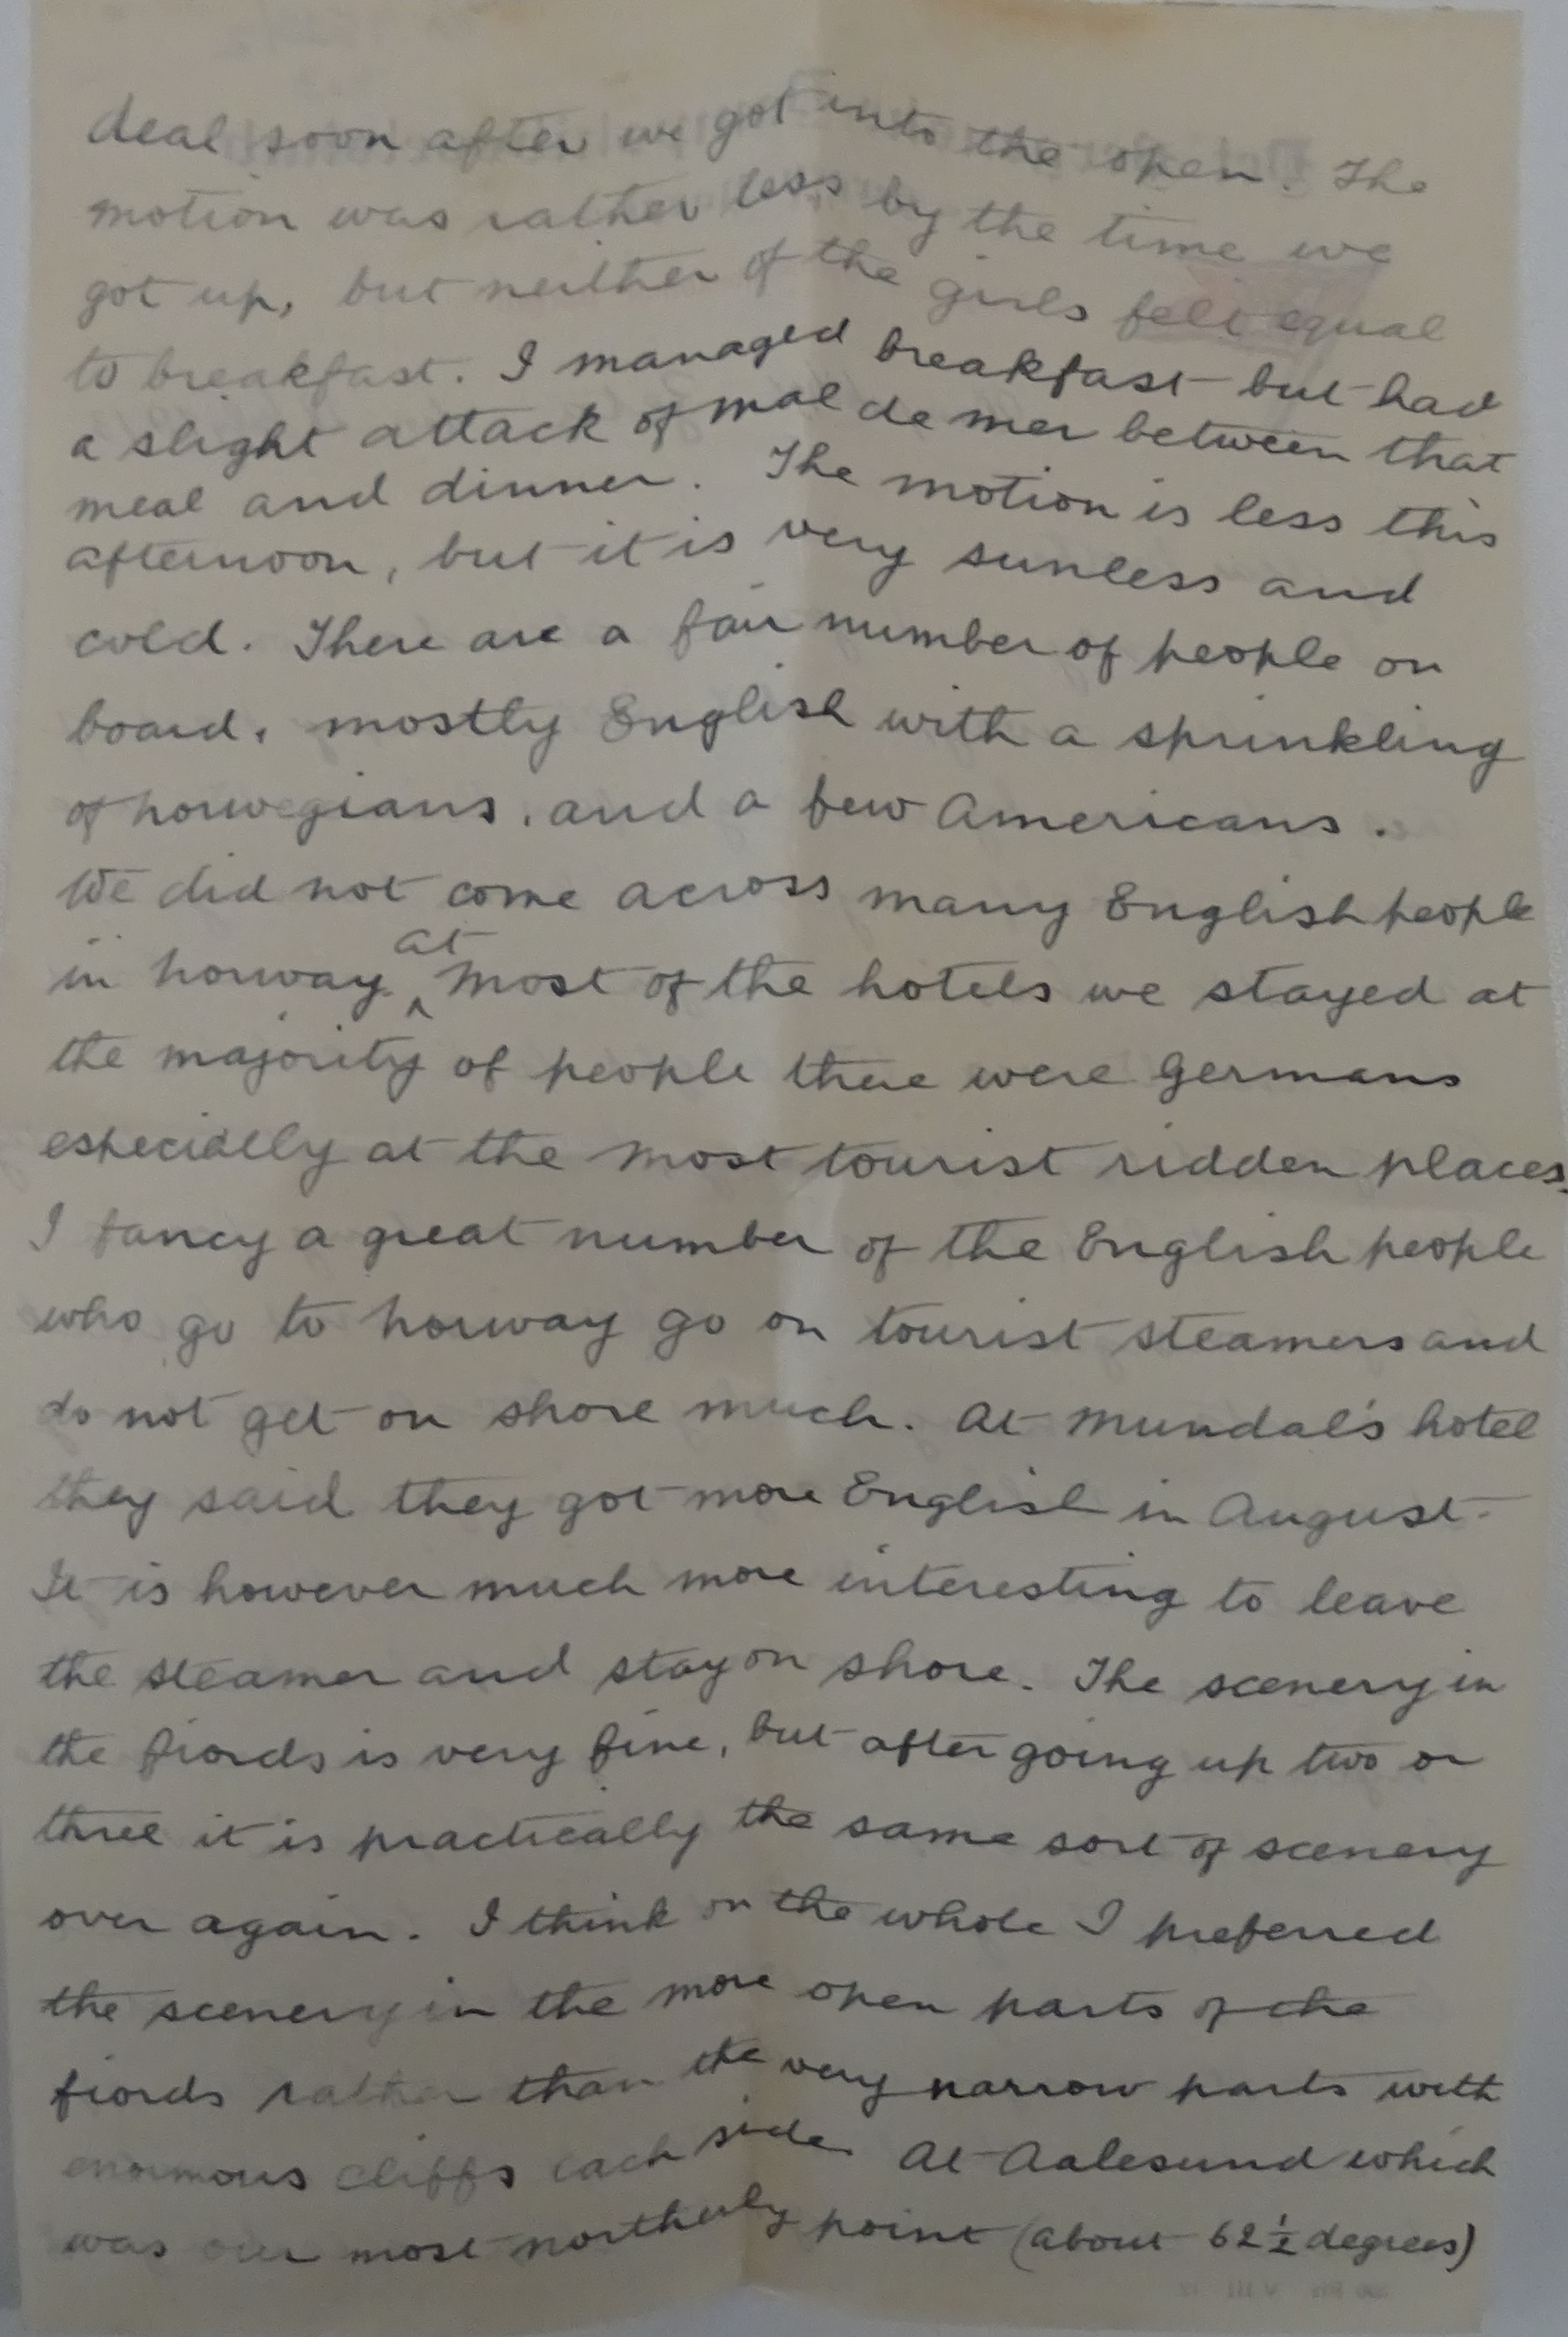 deal soon after we got into the open. The
motion was rather less by the time we
got up, but neither of the girls felt equal
to breakfast. I managed breakfast but had
a slight attack of mal de mer between that
meal and dinner. The motion is less this
afternoon, but it is very sunless and
cold. There are a fair number of people on
board, mostly English with a sprinkling
of norwegians, and a few Americans.
We did not come across many English people
in norway. at most of the hotels we stayed at
the majority of people there were Germans
especially at the most tourist ridden places.
I fancy a great number of the English people
who go to norway go on tourist steamers and
do not get on shore much. At Mundal's hotel
they said they got more English in August.
It is however much more interesting to leave
the steamer and stay on shore. The scenery in
the fiords is very fine, but after going up two or
three it is practically the same sort of scenery
over again. I think on the whole I preferred
the scenery in the more open parts of the
fiords rather than the very narrow parts with
enormous cliffs each side. At Aalesund which
was our most northerly point (about 62½ degrees)